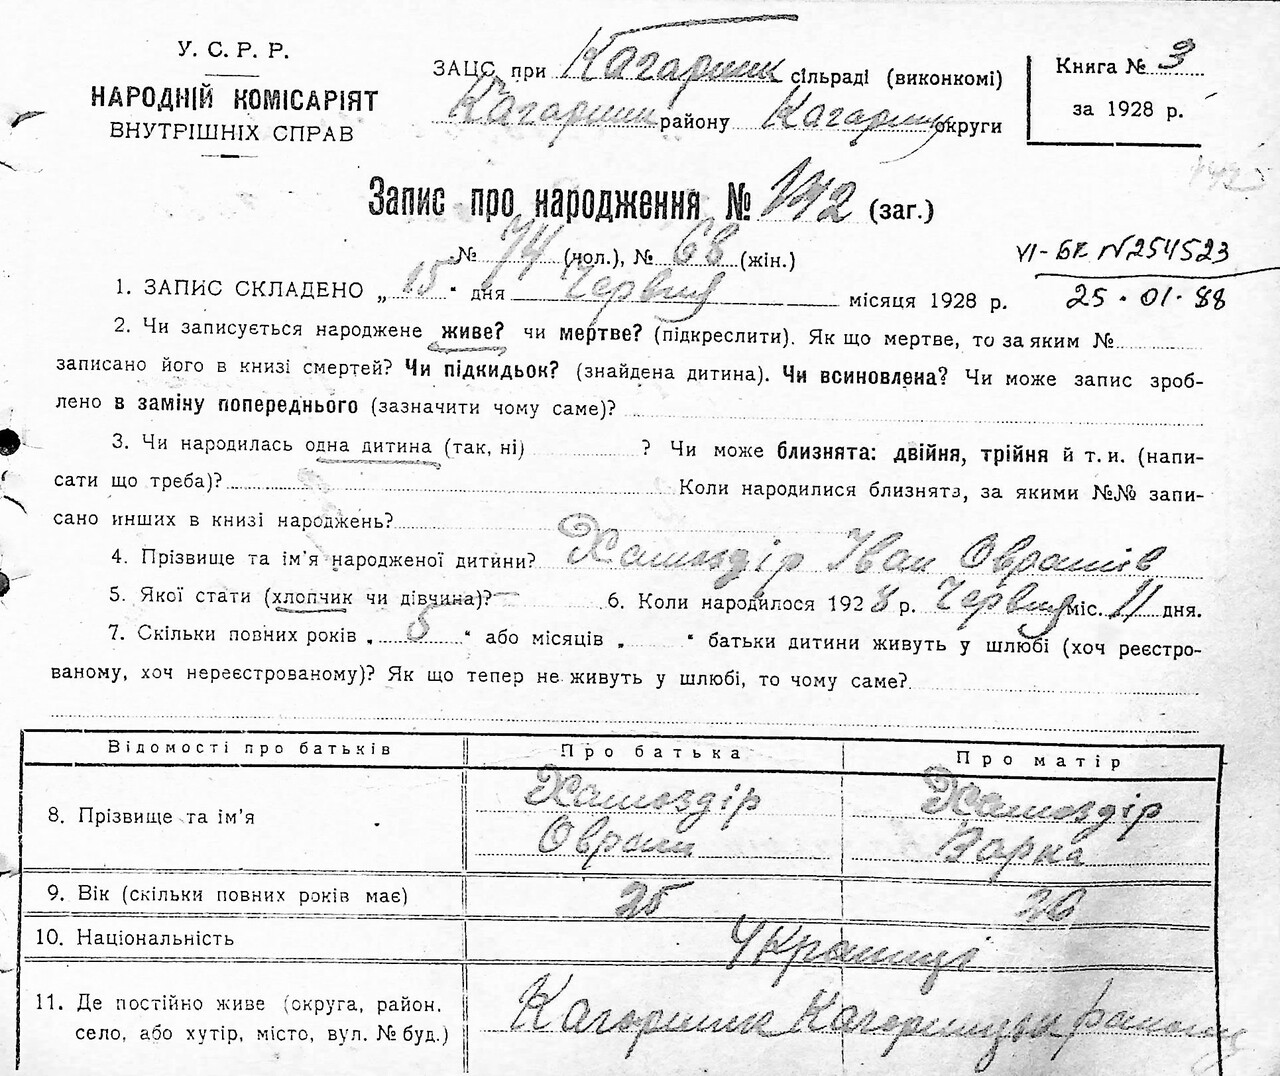 У. С. Р. Р.
НАРОДНІЙ КОМІСАРІЯТ
ВНУТРІШНІХ СПРАВ
ЗАЦС при Кагарлик сільраді (виконкомі)
району округи
Книга № 3
за 1928 р.
Запис про народження № 142 (заг.)
№ 74 (чол.), № 68 (жін.)
VI-БК №254523
25·01·88
1. ЗАПИС СКЛАДЕНО „ 15 " дня Червня місяця 1928 р.
2. Чи записується народжене живе? чи мертве? (підкреслити). Як що мертве, то за яким №
записано його в книзі смертей? Чи підкидьок? (знайдена дитина). Чи всиновлена? Чи може запис зроб-
лено в заміну попереднього (зазначити чому саме)?
3. Чи народилась одна дитина (так, ні) ? Чи може близнята: двійня, трійня й т. и. (напи-
сати що треба)? Коли народилися близнята, за якими №№ запи-
сано инших в книзі народжень?
4. Прізвище та ім'я народженої дитини? Іван
5. Якої стати (хлопчик чи дівчина)? 6. Коли народилося 1928 р. Червня міс. 11 дня.
7. Скільки повних років „ 5 " або місяців „ " батьки дитини живуть у шлюбі (хоч реєстро-
ваному, хоч нереєстрованому)? Як що тепер не живуть у шлюбі, то чому саме?
Відомості про батьків Про батька Про матір
8. Прізвище та ім'я
Оврам Варка
9. Вік (скільки повних років має) 25 26
10. Національність Українці
11. Де постійно живе (округа, район,
село, або хутір, місто, вул. № буд.) Кагарлик